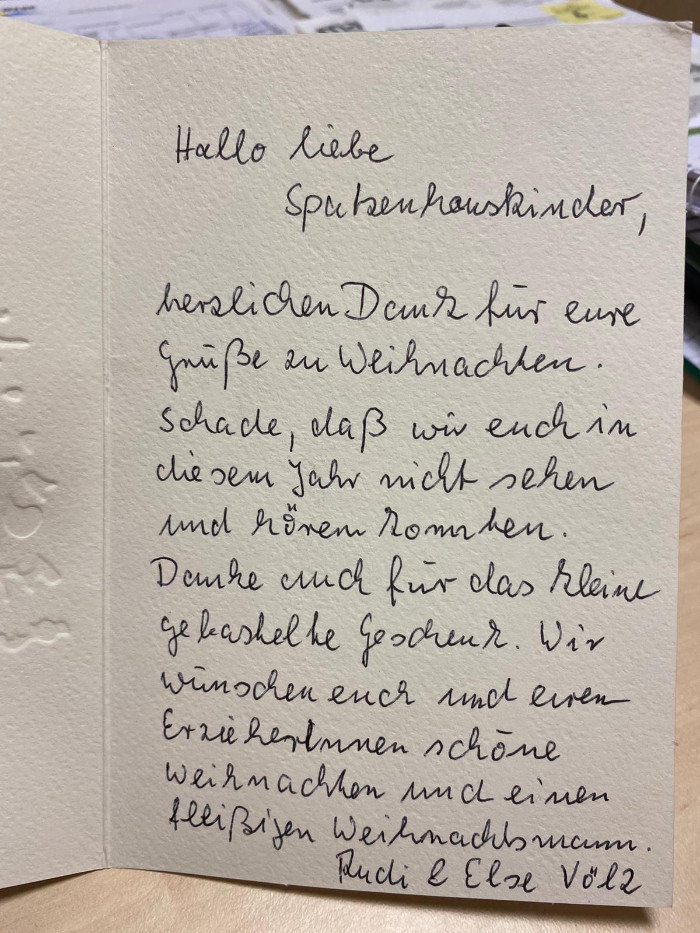 Hallo liebe
Spatzenhauskinder,
herzlichen Dank für eure
Grüße zu Weihnachten.
Schade, daß wir euch in
diesem Jahr nicht sehen
und hören konnten.
Danke auch für das kleine
gebastelte Geschenk. Wir
wünschen euch und euren
ErzieherInnen schöne
Weihnachten und einen
fleißigen Weihnachtsmann.
Rudi & Else Völz